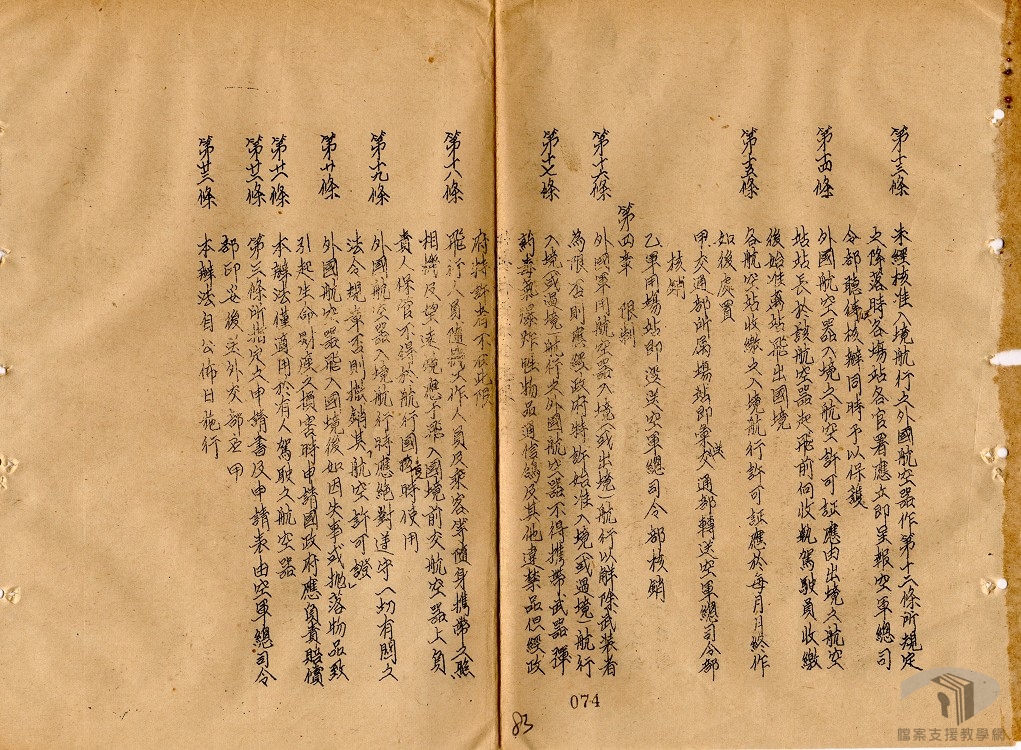 第十三條 未經核准入境航行之外國航空器作第十二條所規定
之降落時各場站各官署應立即呈報空軍總司
令部聽候核辦同時予以保護
第十四條 外國航空器入境之航空許可証應由出境之航空
站站長於該航空器起飛前向收執駕駛員收繳
後始准離站飛出國境
第十五條 各航空站收繳之入境航行許可証應於每月月終作
如後處置
甲、交通部所屬場站即彙送交通部轉送空軍總司令部
核銷
乙、軍用場站即逕送空軍總司令部核銷
第四章 限制
第十六條 外國軍用航空器入境(或出境)航行以解除武裝者
為限否則應經政府特許始准入境(或過境)航行
第十七條 入境(或過境)航行之外國航空器不得携帶武器彈
葯毒氣爆炸性物品通信鴿及其他違禁品但經政
府特許者不在此限
第十八條 飛行人員隨器工作人員及乘客等隨身携帶之照
相機及望遠鏡應于飛入國境前交航空器上負
責人保管不得於航行國境時使用
第十九條 外國航空器入境航行時應絕對遵守一切有關之
法令規章否則撤銷其「航空許可證」
第廿條 外國航空器飛入國境後如因失事或拋落物品致
引起生命財產之損害時申請國政府應負責賠償
第廿一條 本辦法僅適用於有人駕駛之航空器
第廿二條 第三條所指定之申請書及申請表由空軍總司令
部印妥後送外交部應用
第廿三條 本辦法自公佈日施行
074
83
檔案支援教學網